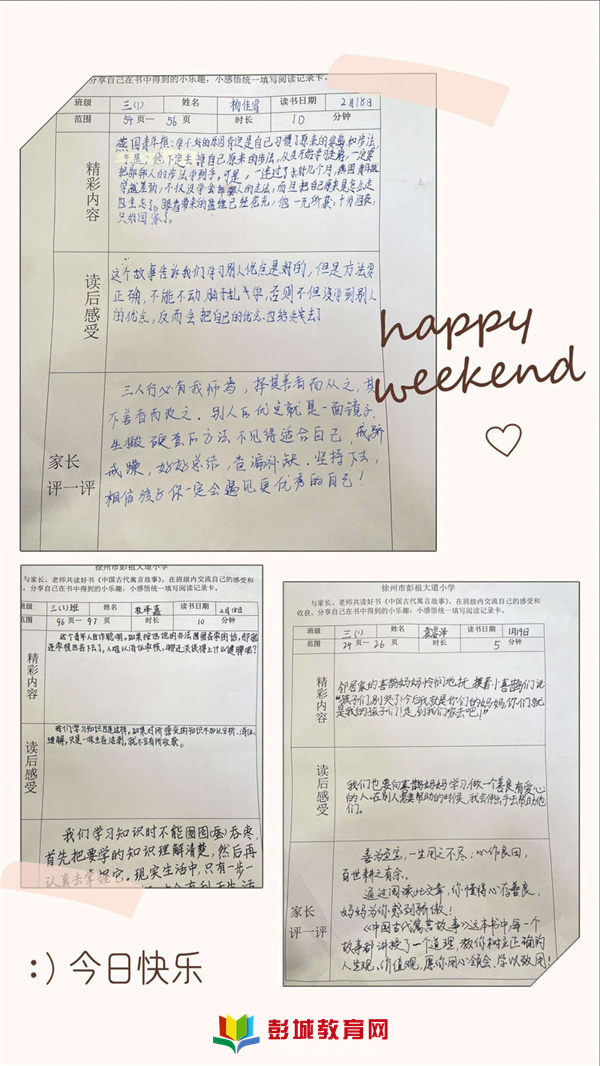 分享自己在书中得到的小乐趣,小感悟统一填写阅读记录卡。
班级 三(1) 姓名 读书日期 2月18日
范围 54页— 56页 时长 10 分钟
精彩内容
燕国青年想:学不好的原因肯定是自己习惯了原来的姿势和步法,
于是,他下定决心丢掉自己原来的步法,从头开始学习走路,一定要
把邯郸人的步法学到手。可是,一连过了好几个月,燕国青年越
学越差劲,不仅没学会邯郸人的走法,而且把自己原来是怎么走
的也忘了。眼看带来的盘缠已经花光,他一无所获,十分沮丧,
只好回家了。
读后感受
这个故事告诉我们学习别人优点是好的,但是方法要
正确,不能不动脑子乱学,否则不但没学到别人
的优点,反而会把自己的优点也给丢了
家长
评一评
三人行必有我师焉,择其善者而从之,其
不善者而改之。别人的优点就是一面镜子,
生搬硬套的方法不见得适合自己,戒骄
戒躁,好好总结,查漏补缺。坚持下去,
相信孩子你一定会遇见更优秀的自己!
happy
weekend
徐州市彭祖大道小学
与家长、老师共读好书《中国古代寓言故事》,在班级内交流自己的感受和
收获,分享自己在书中得到的小乐趣,小感悟统一填写阅读记录卡。
班级 三(1)班 姓名 读书日期 2月18日
范围 96页— 97页 时长 10
精彩内容
这个青年人自作聪明,如果按他说的办法囫囵吞枣的话,那就
连枣核也吞下去了,人难以消化枣核,哪还谈得上什么健脾呢?
读后感受
我们学习知识也是这样,如果对所接受的知识不加以分析、消化、
理解,只是一味生吞活剥,就不会有所收获。
我们学习知识时不能囫囵(卷)吞枣
首先把要学的知识理解清楚,然后再
认真去掌握它。现实生活中,只有一步一
徐州市彭祖大道小学
与家长、老师共读好书《中国古代寓言故事》,在班级内交流自己的感受和
收获,分享自己在书中得到的小乐趣,小感悟统一填写阅读记录卡。
班级 三(1) 姓名 读书日期 1月19日
范围 24页— 26页 时长 5 分钟
精彩内容
邻居家的喜鹊妈妈怜悯地抚摸着小喜鹊们说
“孩子们,别哭了!今后我就是你们的妈妈,你们就
是我的孩子们!走,到我们家去吧!”
读后感受
我们也要向喜鹊妈妈学习,做一个善良有爱心
的人。在别人需要帮助的时候,我会伸出手去帮助他
们。
家长
评一评
善为至宝,一生用之不尽;心作良田,
百世耕之有余。
通过阅读此文章,你懂得心存善良,
妈妈为你感到骄傲!
《中国古代寓言故事》这本书中每一个
故事都讲授了一个道理,教你树立正确的
人生观、价值观,愿你用心领会,学以致用!
:) 今日快乐
彭城教育网